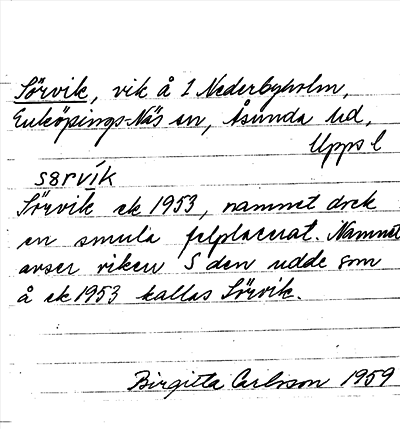 Sörvik, vik å 1 Nederbyholm,
Enköpings-Näs sn, Åsunda hd,
Uppsl
sørvík
Sörvik ek 1953, namnet dock
en smula felplacerat. Namnet
avser viken S den udde som
å ek 1953 kallas Sörvik.
Birgitta Carlsson 1959